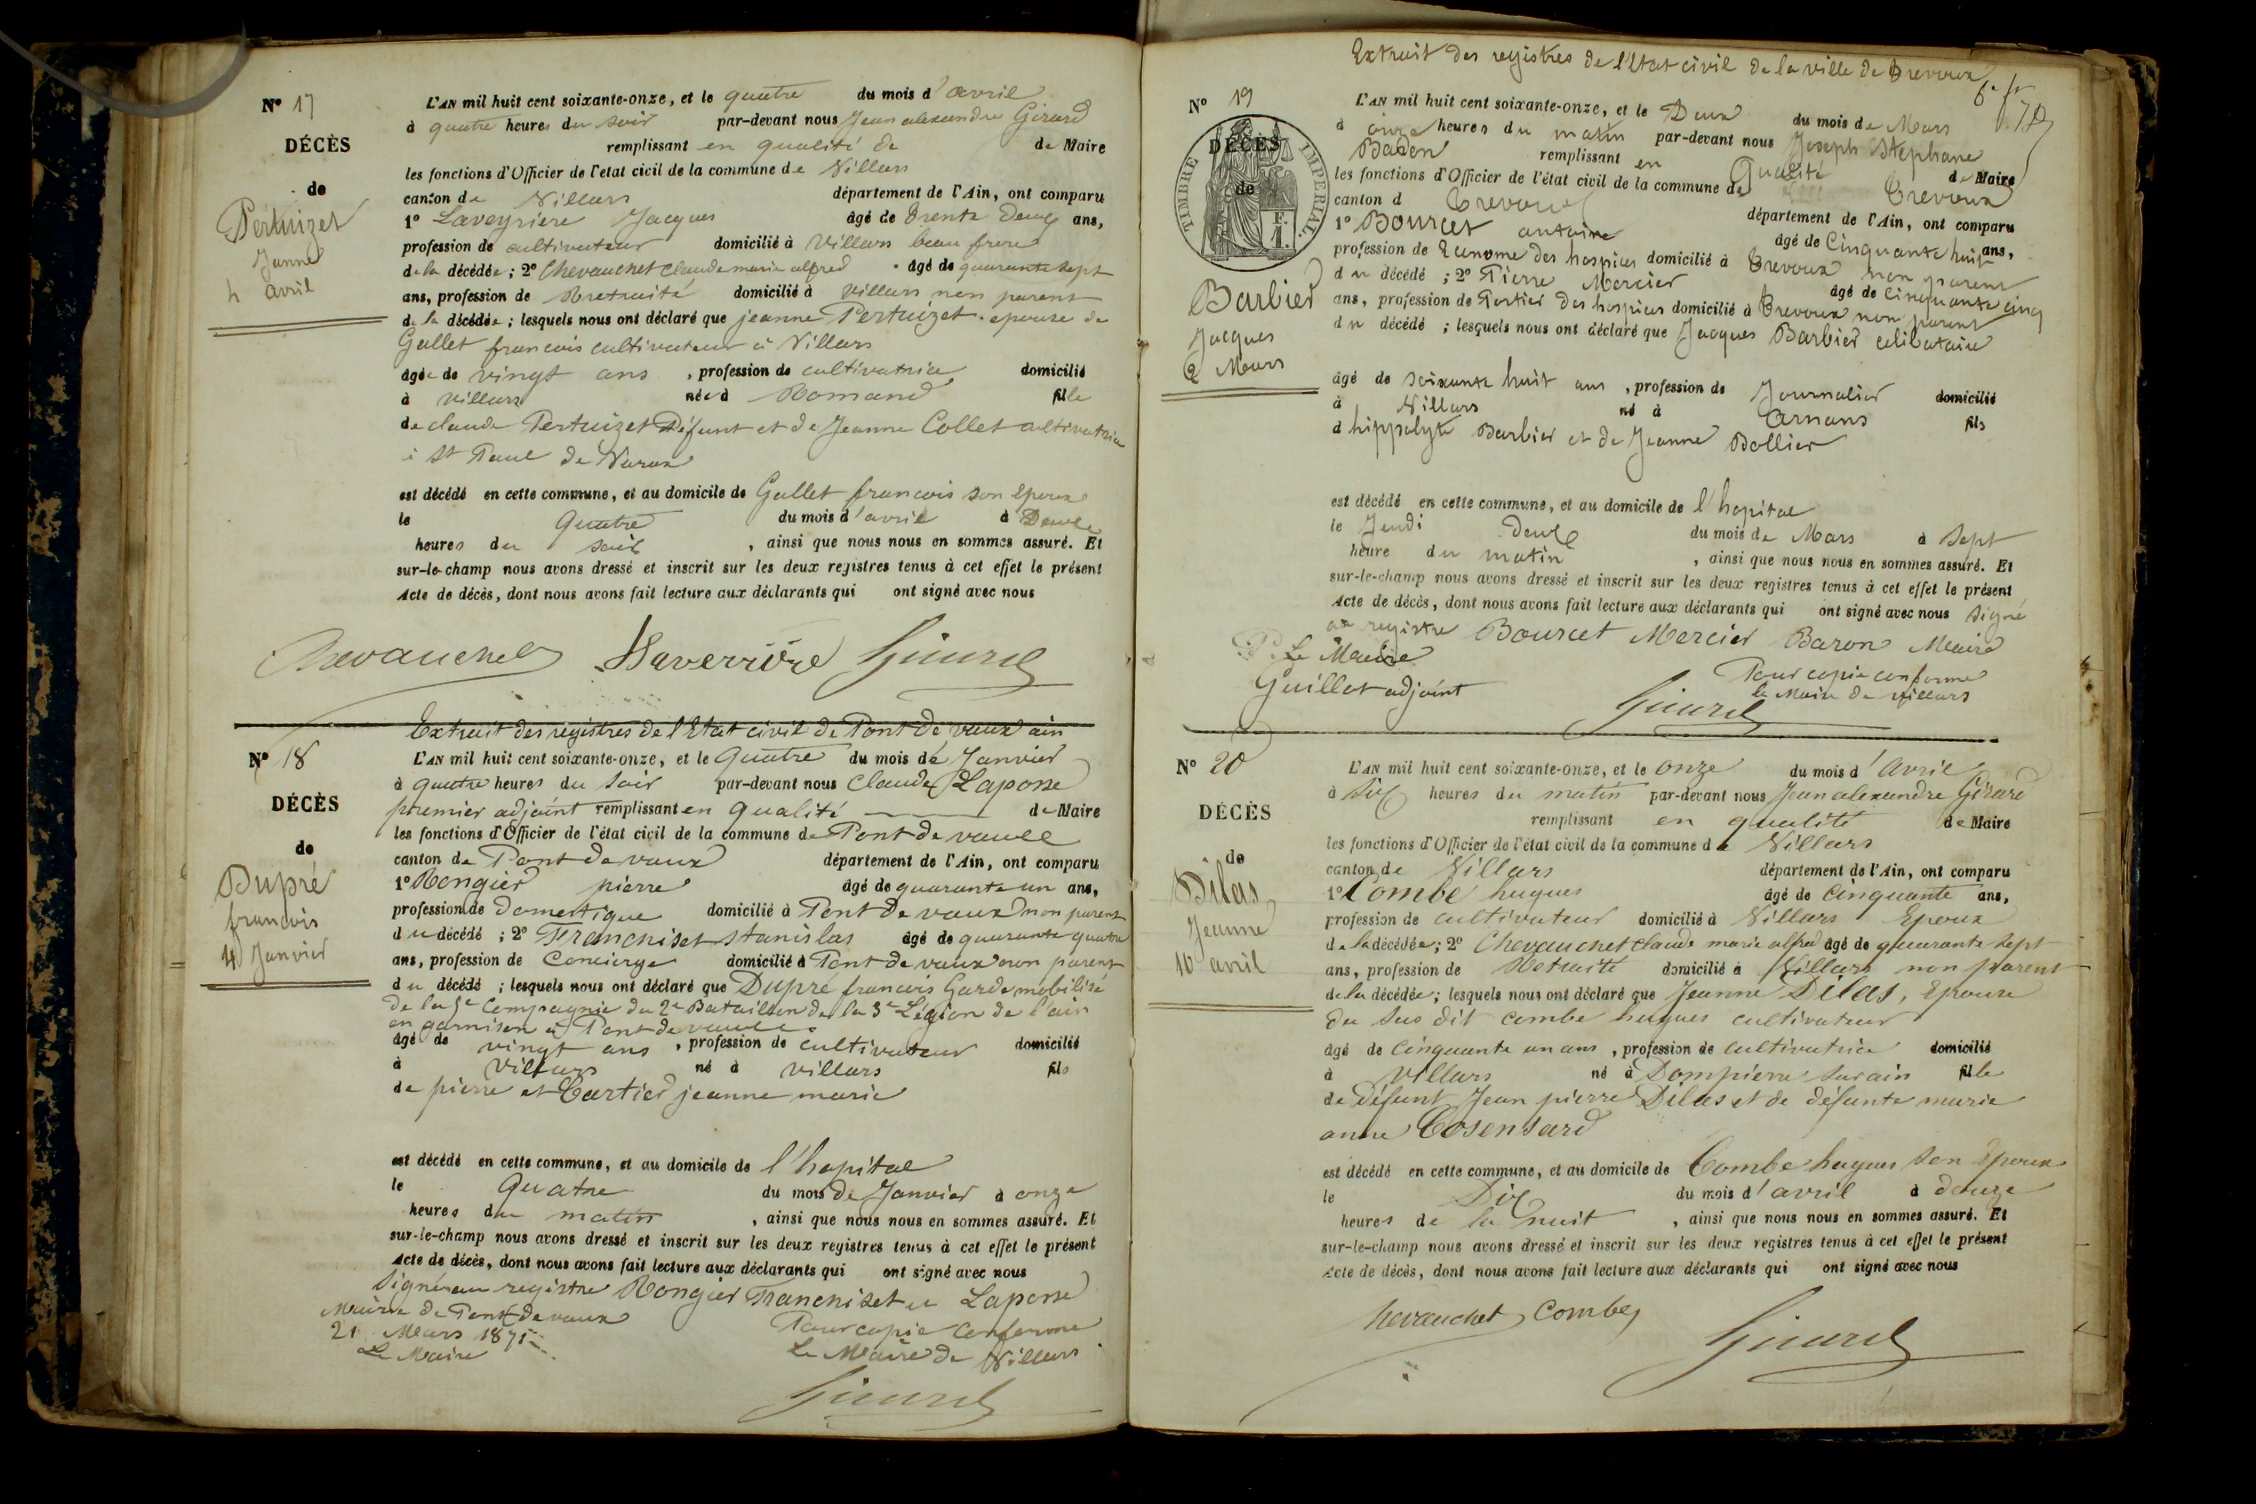 N° 17
DÉCÈS
de
Pertuizet
Jeanne
4 avril
L'AN mil huit cent soixante-onze, et le quatre du mois d'avril
à quatre heures du soir par-devant nous Jean alexandre Girard
remplissant en qualité de de Maire
les fonctions d'Officier de l'état civil de la commune de Villars
canton de Villars département de l'Ain, ont comparu
1° Laveyriere Jacques âgé de Trente deux ans,
profession de cultivateur domicilié à Villars beau frere
de la décédée ; 2° Chevauchet claude marie alfred âgé de quarante sept
ans, profession de Retraité domicilié à villars non parent
de la décédée ; lesquels nous ont déclaré que jeanne Pertuizet epouse de
Gallet francois cultivateur à Villars
âgée de vingt ans , profession de cultivatrice domicilié
à villars née à Romand fille
de claude Pertuizet Défunt et de Jeanne Collet cultivatrice
à St Paul de Varax
est décédé en cette commune, et au domicile de Gallet francois son Epoux
le quatre du mois d'avril à Deux
heures du soir , ainsi que nous nous en sommes assuré. Et
sur-le-champ nous avons dressé et inscrit sur les deux registres tenus à cet effet le présent
Acte de décès, dont nous avons fait lecture aux déclarants qui ont signé avec nous
Chevauchet Laverrière Girard
Extrait des registres de l'Etat civil de Pont de vaux ain
N° 18
DÉCÈS
de
Dupré
francois
4 Janvier
L'AN mil huit cent soixante-onze, et le Quatre du mois de Janvier
à quatre heures du soir par-devant nous Claude Laposse
premier adjoint remplissant en qualité de Maire
les fonctions d'Officier de l'état civil de la commune de Pont de vaux
canton de Pont de vaux département de l'Ain, ont comparu
1° Rongier pierre âgé de quarante un ans,
profession de domestique domicilié à Pont de vaux non parent
du décédé ; 2° Franchiset stanislas âgé de quarante quatre
ans, profession de Concierge domicilié à Pont de vaux non parent
du décédé ; lesquels nous ont déclaré que Dupré francois Garde mobilisé
de la 5e Compagnie du 2e Bataillon de la 3e Légion de l'ain
en garnison à Pont de vaux
âgé de vingt ans , profession de cultivateur domicilié
à Villars né à villars fils
de pierre et Cartier jeanne marie
est décédé en cette commune, et au domicile de l'hopital
le Quatre du mois de Janvier à onze
heures du matin , ainsi que nous nous en sommes assuré. Et
sur-le-champ nous avons dressé et inscrit sur les deux registres tenus à cet effet le présent
Acte de décès, dont nous avons fait lecture aux déclarants qui ont signé avec nous
Signé au registre Rongier Franchiset et Laposse
Mairie de Pont de vaux
21 Mars 1871
Le Maire
Pour copie conforme
Le Maire de Villars
Girard
Extrait des registres de l'Etat civil de la ville de Trevoux
N° 19
DÉCÈS
de
TIMBRE IMPÉRIAL
Barbier
Jacques
2 Mars
L'AN mil huit cent soixante-onze, et le Deux du mois de Mars
à onze heures du matin par-devant nous Joseph Stephane
Baron remplissant en Qualité de Maire
les fonctions d'Officier de l'état civil de la commune de Trevoux
canton d Trevoux département de l'Ain, ont comparu
1° Bourcet antoine âgé de Cinquante huit ans,
profession de Econome des hospices domicilié à Trevoux non parent
du décédé ; 2° Pierre Mercier âgé de cinquante cinq
ans, profession de Portier des hospices domicilié à Trevoux non parent
du décédé ; lesquels nous ont déclaré que Jacques Barbier celibataire
âgé de Soixante huit ans , profession de Journalier domicilié
à Villars né à Arnans fils
d hippolyte Barbier et de Jeanne Bollier
est décédé en cette commune, et au domicile de l'hopital
le Jeudi Deux du mois de Mars à sept
heure du matin , ainsi que nous nous en sommes assuré. Et
sur-le-champ nous avons dressé et inscrit sur les deux registres tenus à cet effet le présent
Acte de décès, dont nous avons fait lecture aux déclarants qui ont signé avec nous signé
au registre Bourcet Mercier Baron Maire
P. Le Maire
Guillot adjoint
Pour copie conforme
le Maire de villars
Girard
N° 20
DÉCÈS
de
Dilas
Jeanne
10 avril
L'AN mil huit cent soixante-onze, et le onze du mois d'Avril
à six heures du matin par-devant nous Jean alexandre Girard
remplissant en qualité de Maire
les fonctions d'Officier de l'état civil de la commune de Villars
canton de Villars département de l'Ain, ont comparu
1° Combe hugues âgé de Cinquante ans,
profession de cultivateur domicilié à Villars Epoux
de la décédée ; 2° Chevauchet claude marie alfred âgé de quarante sept
ans, profession de Retraité domicilié à Villars non parent
de la décédée ; lesquels nous ont déclaré que Jeanne Dilas, Epouse
du sus dit combe hugues cultivateur
âgé de cinquante un ans , profession de cultivatrice domicilié
à villars né à Dompierre sur ain fille
de Défunt Jean pierre Dilas et de défunte marie
anne Cosensard
est décédé en cette commune, et au domicile de Combe hugues son Epoux
le Dix du mois d'avril à douze
heures de la nuit , ainsi que nous nous en sommes assuré. Et
sur-le-champ nous avons dressé et inscrit sur les deux registres tenus à cet effet le présent
Acte de décès, dont nous avons fait lecture aux déclarants qui ont signé avec nous
Chevauchet Combe
Girard